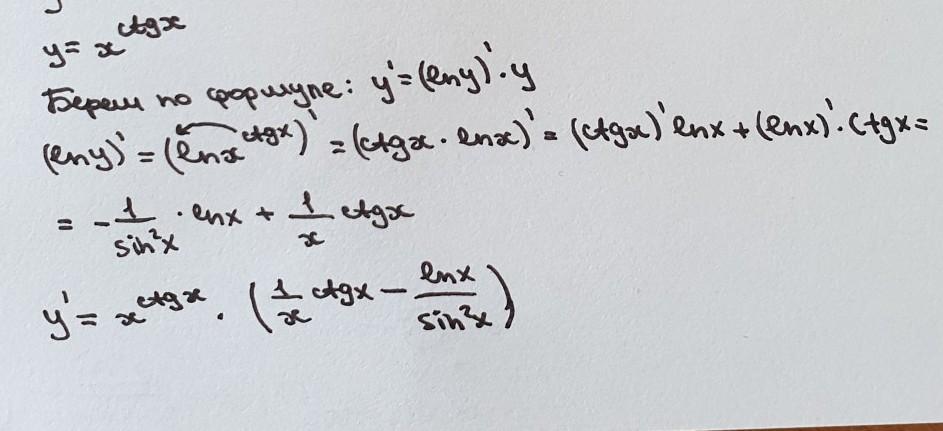 y = x^ctgx
Берем по формуле: y' = (lny)' · y
(lny)' = (lnx^ctgx)' = (ctgx · lnx)' = (ctgx)' lnx + (lnx)' · ctgx =
= - 1/sin²x · lnx + 1/x ctgx
y' = x^ctgx · (1/x ctgx - lnx/sin²x)